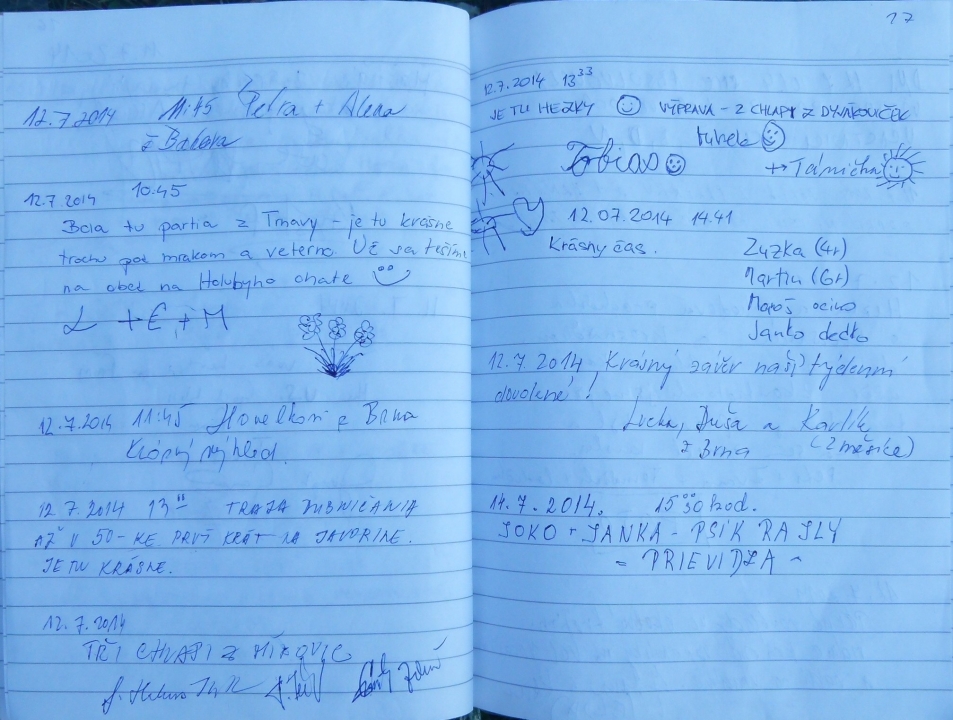 12.7.2014 11:45 Petra + Alena
z
12.7.2014 10:45
Bola tu partia z Trnavy - je tu krásne
trochu pod mrakom a veterno. Už sa tešíme
na obed na Holubyho chate
L + E + M
12.7.2014 11:45 z Brna
Krásný výhled.
12.7.2014 13 TRAJA DUBNIČANIA
V 50-KE. PRVÝ KRÁT NA JAVORINE.
JE TU KRÁSNE.
12.7.2014
TŘI CHLAPI Z MÍKOVIC
17
12.7.2014 13 33
JE TU HEZKY VÝPRAVA - Z CHLAPY Z
Tobias
12.07.2014 14.41
Krásny čas. Zuzka (4r)
Martin (6r)
ocino
Janko dedko
12.7.2014, Krásný závěr naší týdenní
dovolené!
Lucka, Duša a Kavlík
z Brna (2 měsíce)
14.7.2014. hod.
JOKO + JANKA - PSÍK
- PRIEVIDZA -